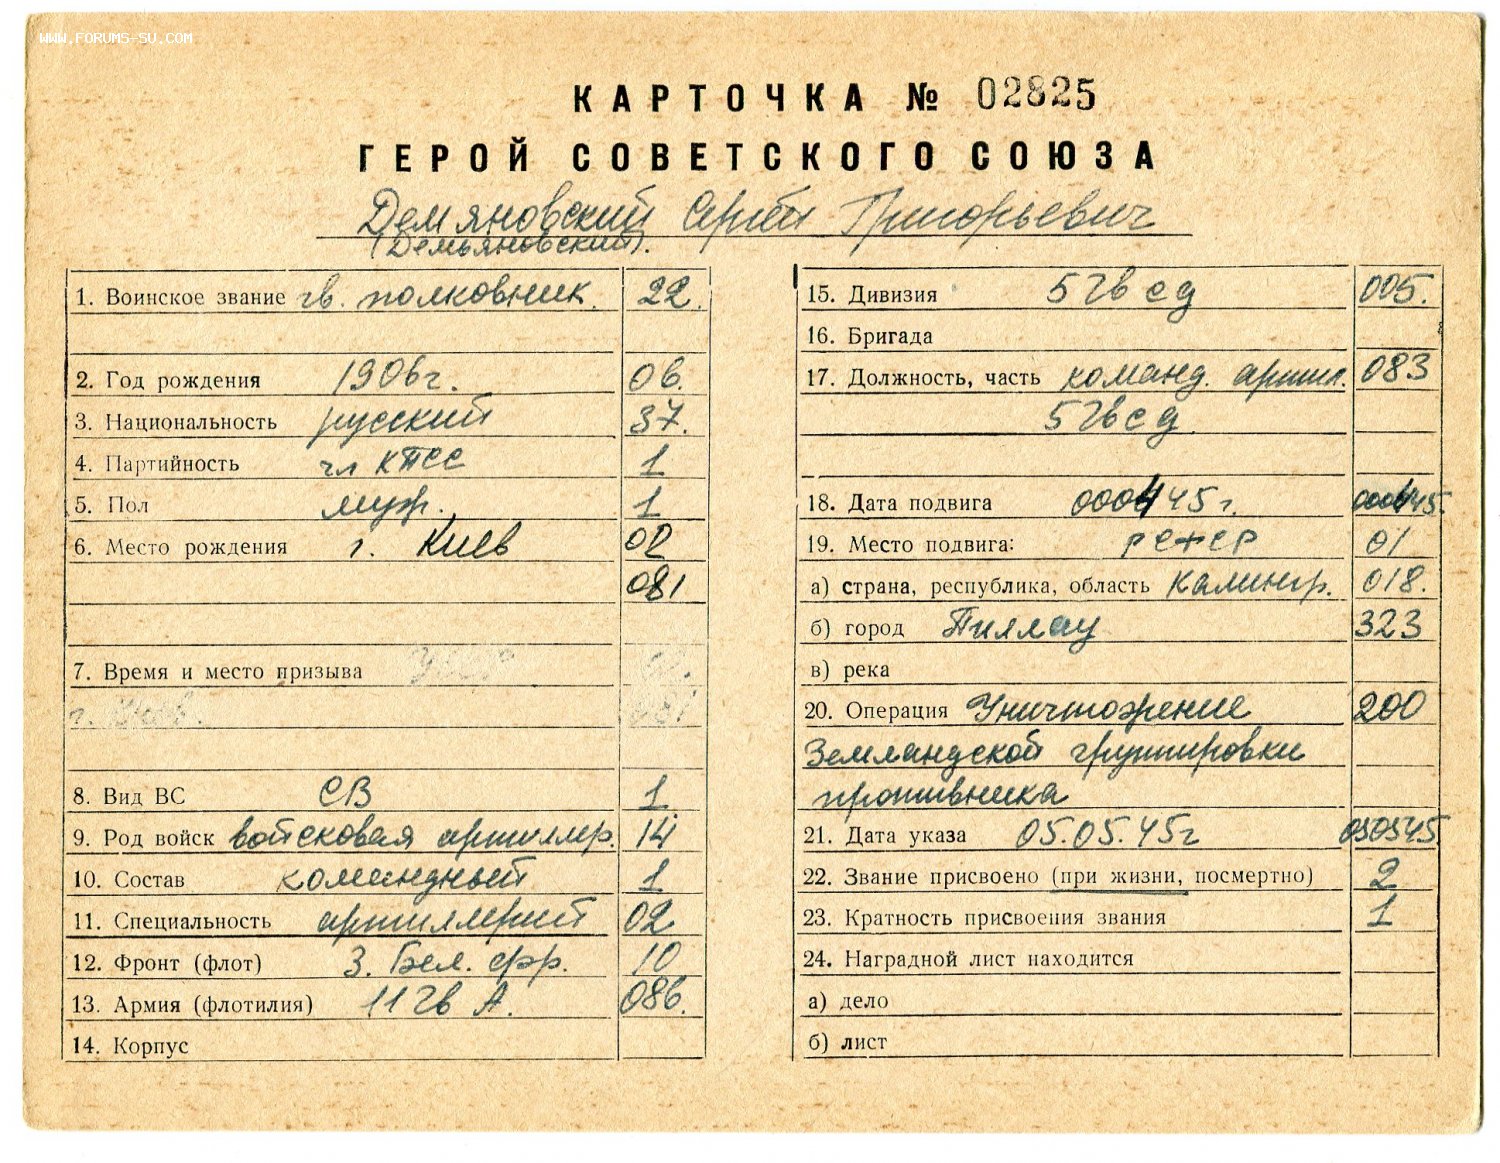 WWW.FORUMS-SU.COM
КАРТОЧКА № 02825
ГЕРОЙ СОВЕТСКОГО СОЮЗА
Демяновский Сергей Григорьевич
(Демьяновский).
1. Воинское звание гв. полковник. 22.
2. Год рождения 1906г. 06.
3. Национальность русский 37.
4. Партийность чл КПСС 1
5. Пол муж. 1
6. Место рождения г. Киев 02
081
7. Время и место призыва УССР
г. Киев.
8. Вид ВС СВ 1
9. Род войск войсковая артиллер. 14
10. Состав командный 1
11. Специальность артиллерист 02
12. Фронт (флот) 3. Бел. фр. 10
13. Армия (флотилия) 11 гв А. 086.
14. Корпус
15. Дивизия 5 гв сд 005.
16. Бригада
17. Должность, часть команд. артил. 083
5 гв сд
18. Дата подвига 000445г. 000445.
19. Место подвига: РСФСР 01
а) страна, республика, область Калингр. 018.
б) город Пиллау 323
в) река
20. Операция Уничтожение 200
Земландской группировки
противника
21. Дата указа 05.05.45г 050545
22. Звание присвоено (при жизни, посмертно) 2
23. Кратность присвоения звания 1
24. Наградной лист находится
а) дело
б) лист